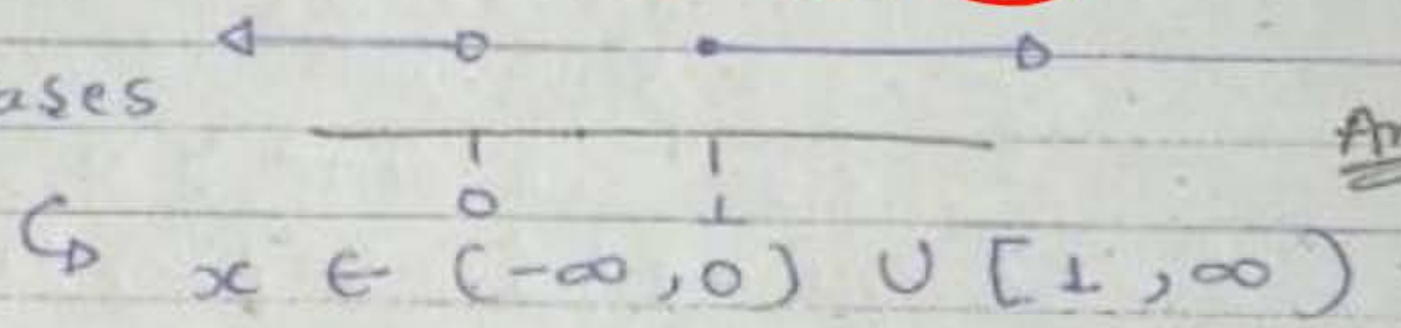 ases
0 1
x ∈ (-∞,0) ∪ [1,∞)